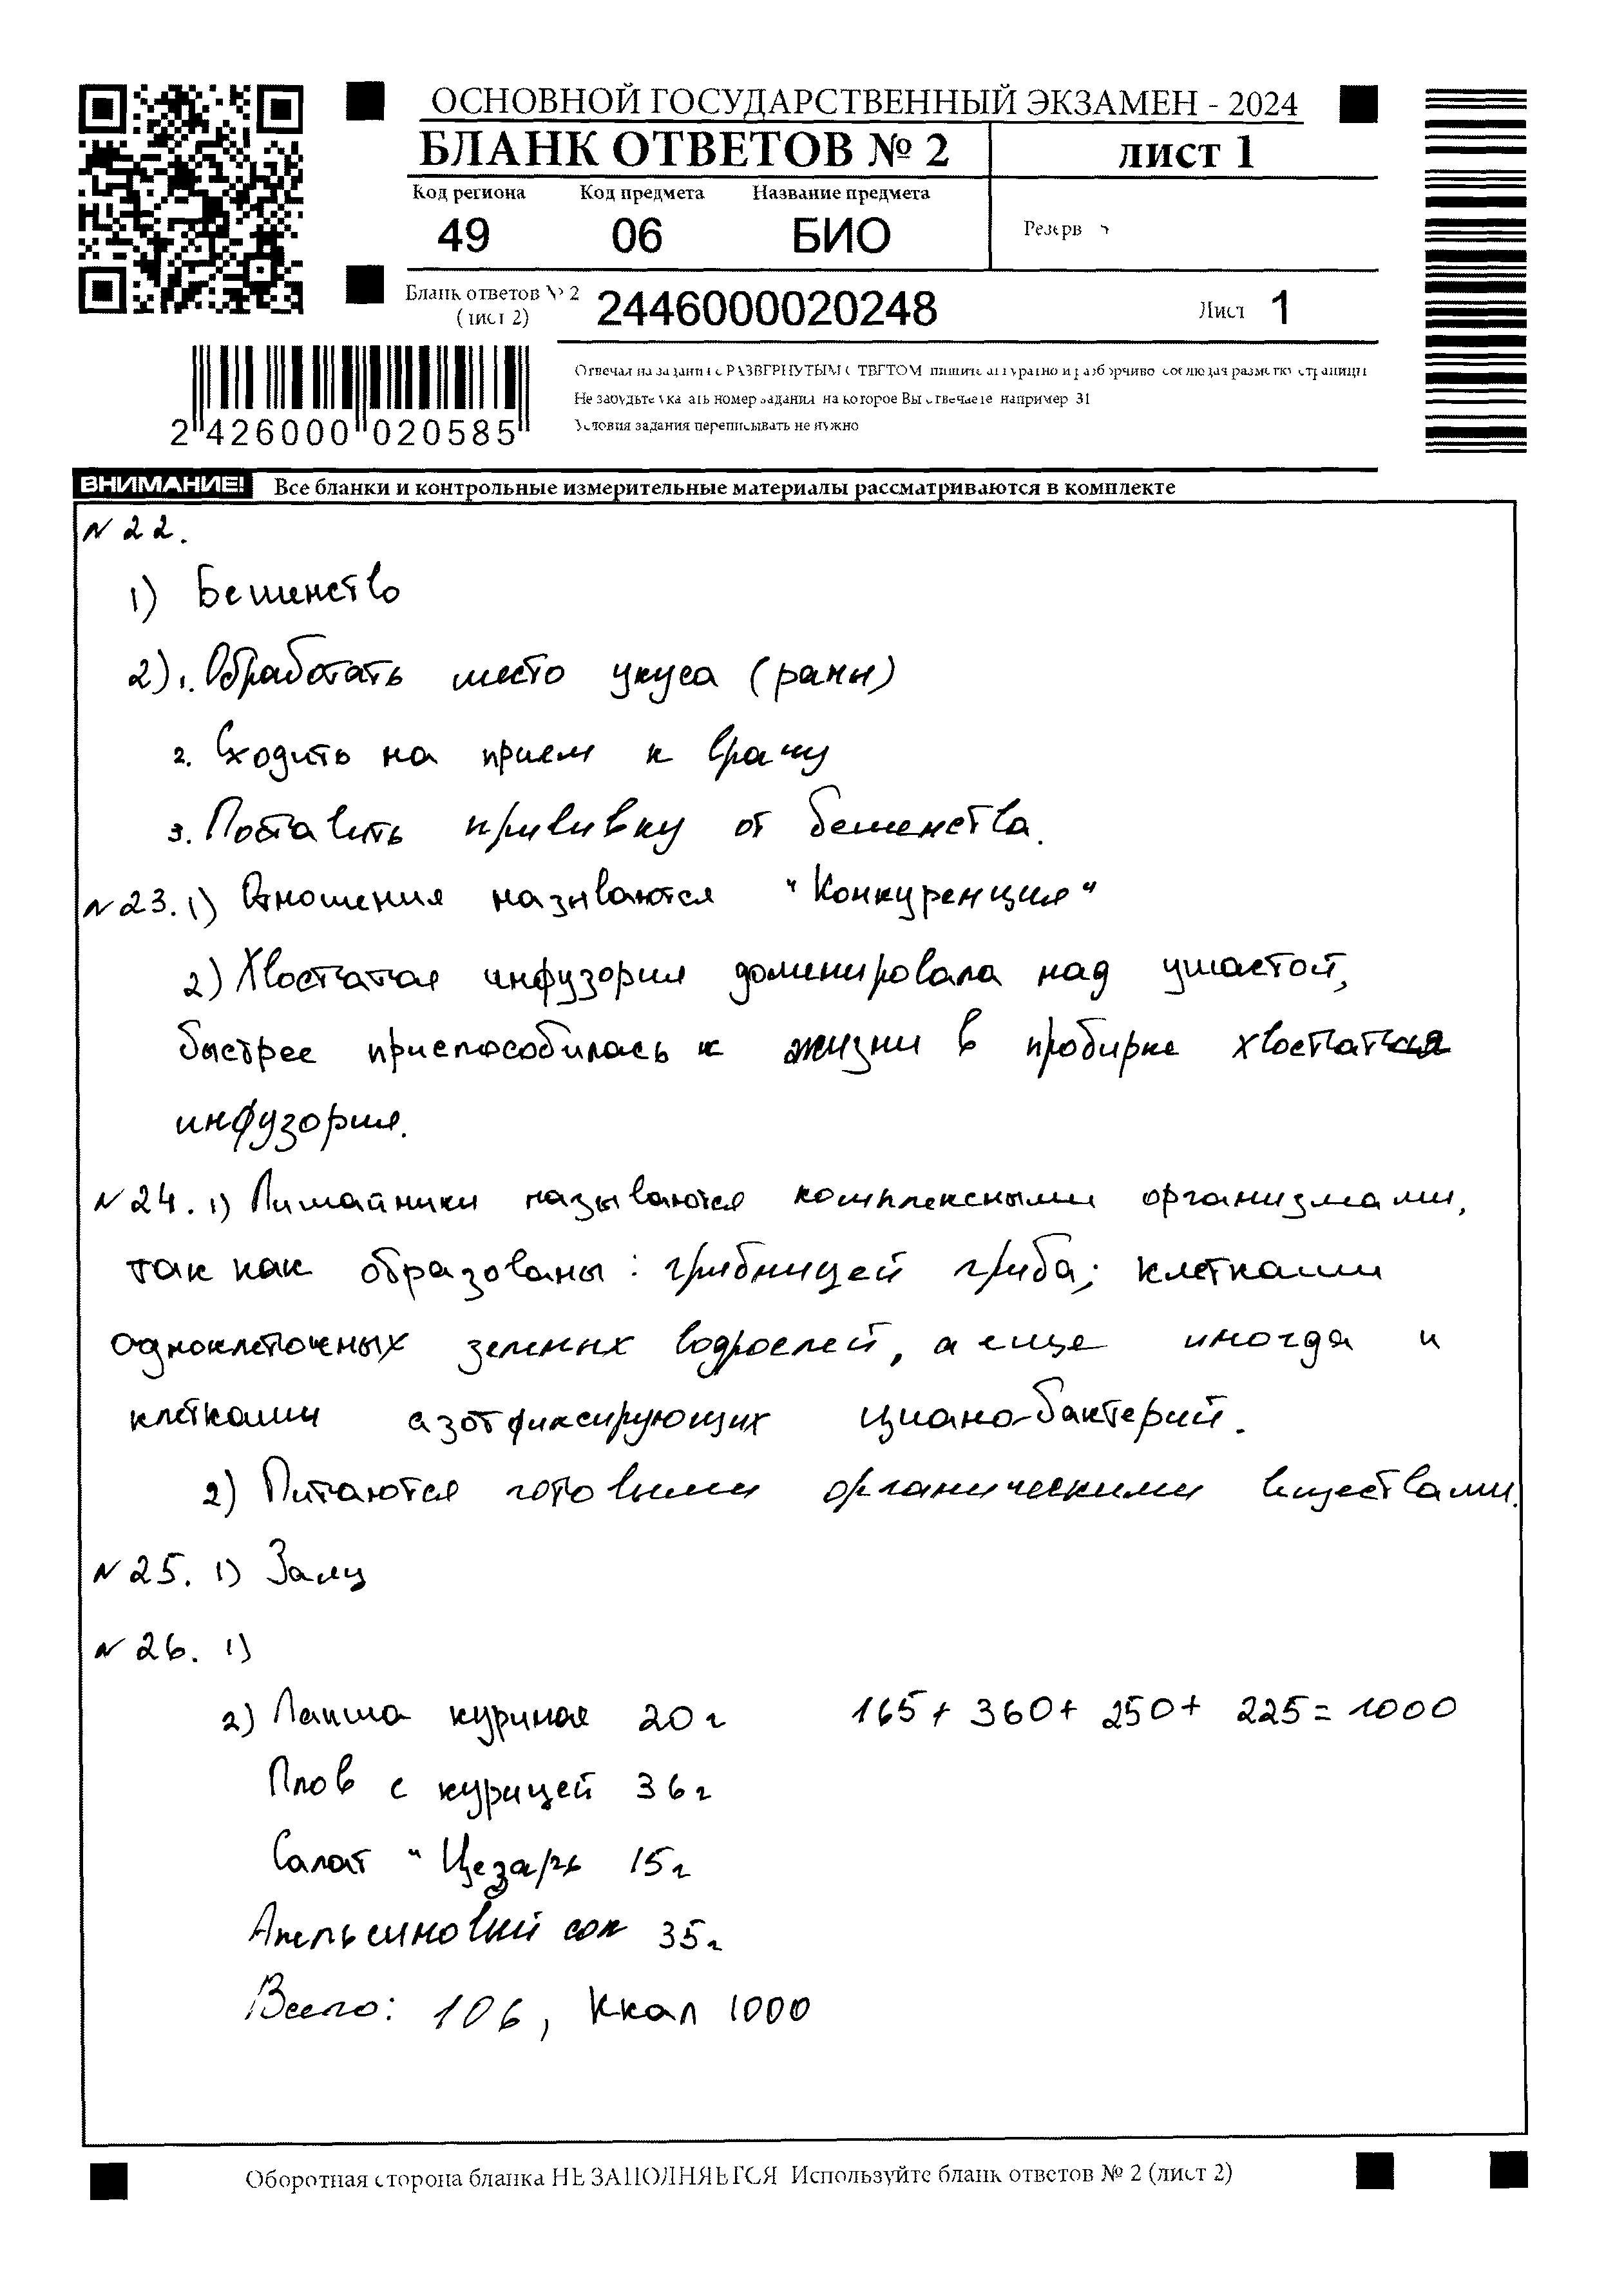 ОСНОВНОЙ ГОСУДАРСТВЕННЫЙ ЭКЗАМЕН - 2024
БЛАНК ОТВЕТОВ № 2
ЛИСТ 1
Код региона Код предмета Название предмета
49 06 БИО
Резерв
Бланк ответов № 2
(лист 2)
2446000020248
Лист 1
2 426000 020585
Отвечая на задания с РАЗВЕРНУТЫМ ОТВЕТОМ пишите аккуратно и разборчиво соблюдая разметку страницы
Не забудьте указать номер задания на которое Вы отвечаете например 31
Условия задания переписывать не нужно
ВНИМАНИЕ! Все бланки и контрольные измерительные материалы рассматриваются в комплекте
N 22.
1) Бешинство
2) 1. Обработать место укуса (раны)
2. Сходить на прием к врачу
3. Поставить прививку от бешенства.
N 23. 1) Отношения называются "Конкуренция"
2) Хвостатая инфузория доминировала над ушастой,
быстрее приспособилась к жизни в пробирке хвостатая
инфузория.
N 24. 1) Лишайники называются комплексными организмами,
так как образованы: грибницей гриба; клетками
одноклеточных зеленых водрослей, а еще иногда и
клетками азотфиксирующих циано-бактерий.
2) Питаются готовыми органическими веществами.
N 25. 1) Заяц
N 26. 1)
2) Лапша куриная 20 г 165 + 360 + 250 + 225 = 1000
Плов с курицей 36 г
Салат "Цезарь 15 г
Апельсиновый сок 35 г
Всего: 106, Ккал 1000
Оборотная сторона бланка НЕ ЗАПОЛНЯЕТСЯ Используйте бланк ответов № 2 (лист 2)